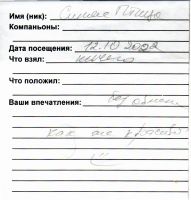 Имя (ник): Синяя Птица
Компаньоны:
Дата посещения: 12.10.2002
Что взял: ничего
Что положил:
Ваши впечатления: без обмена
как же красиво